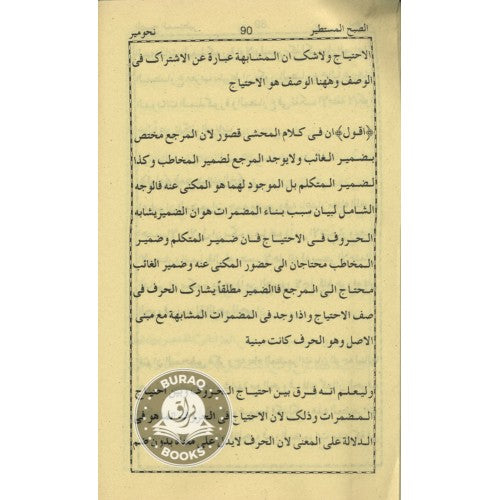 الصبح المستطير 90 نحومير
الاحتياج ولاشك ان المشابهة عبارة عن الاشتراك فى
الوصف وههنا الوصف هو الاحتياج
﴿اقول﴾ان فى كلام المحشى قصور لان المرجع مختص
بضمير الغائب ولايوجد المرجع لضمير المخاطب وكذا
لضمير المتكلم بل الموجود لهما هو المكنى عنه فالوجه
الشامل لبيان سبب بناء المضمرات هوان الضميريشابه
الحروف فى الاحتياج فان ضمير المتكلم وضمير
المخاطب محتاجان الى حضور المكنى عنه وضمير الغائب
محتاج الى المرجع فاالضمير مطلقاً يشارك الحرف فى
صف الاحتياج واذا وجد فى المضمرات المشابهة مع مبنى
الاصل وهو الحرف كانت مبنية
وليعلم انه فرق بين احتياج الحروف وبين احتياج
المضمرات وذلك لان الاحتياج فى هو فى
الدلالة على المعنى لان الحرف لايدل على معناه بدون ضم
BURAQ
براق
BOOKS